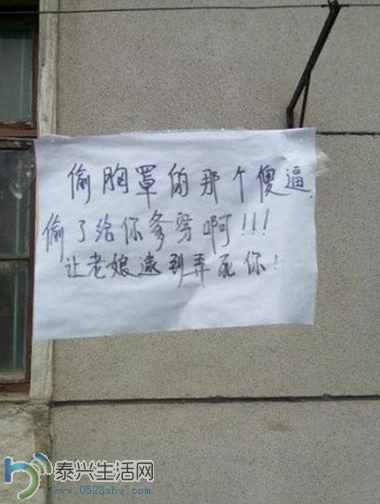 偷胸罩的那个傻逼
偷了给你爹穿啊!!!
让老娘逮到弄死你!
泰兴生活网
www.0523shw.com